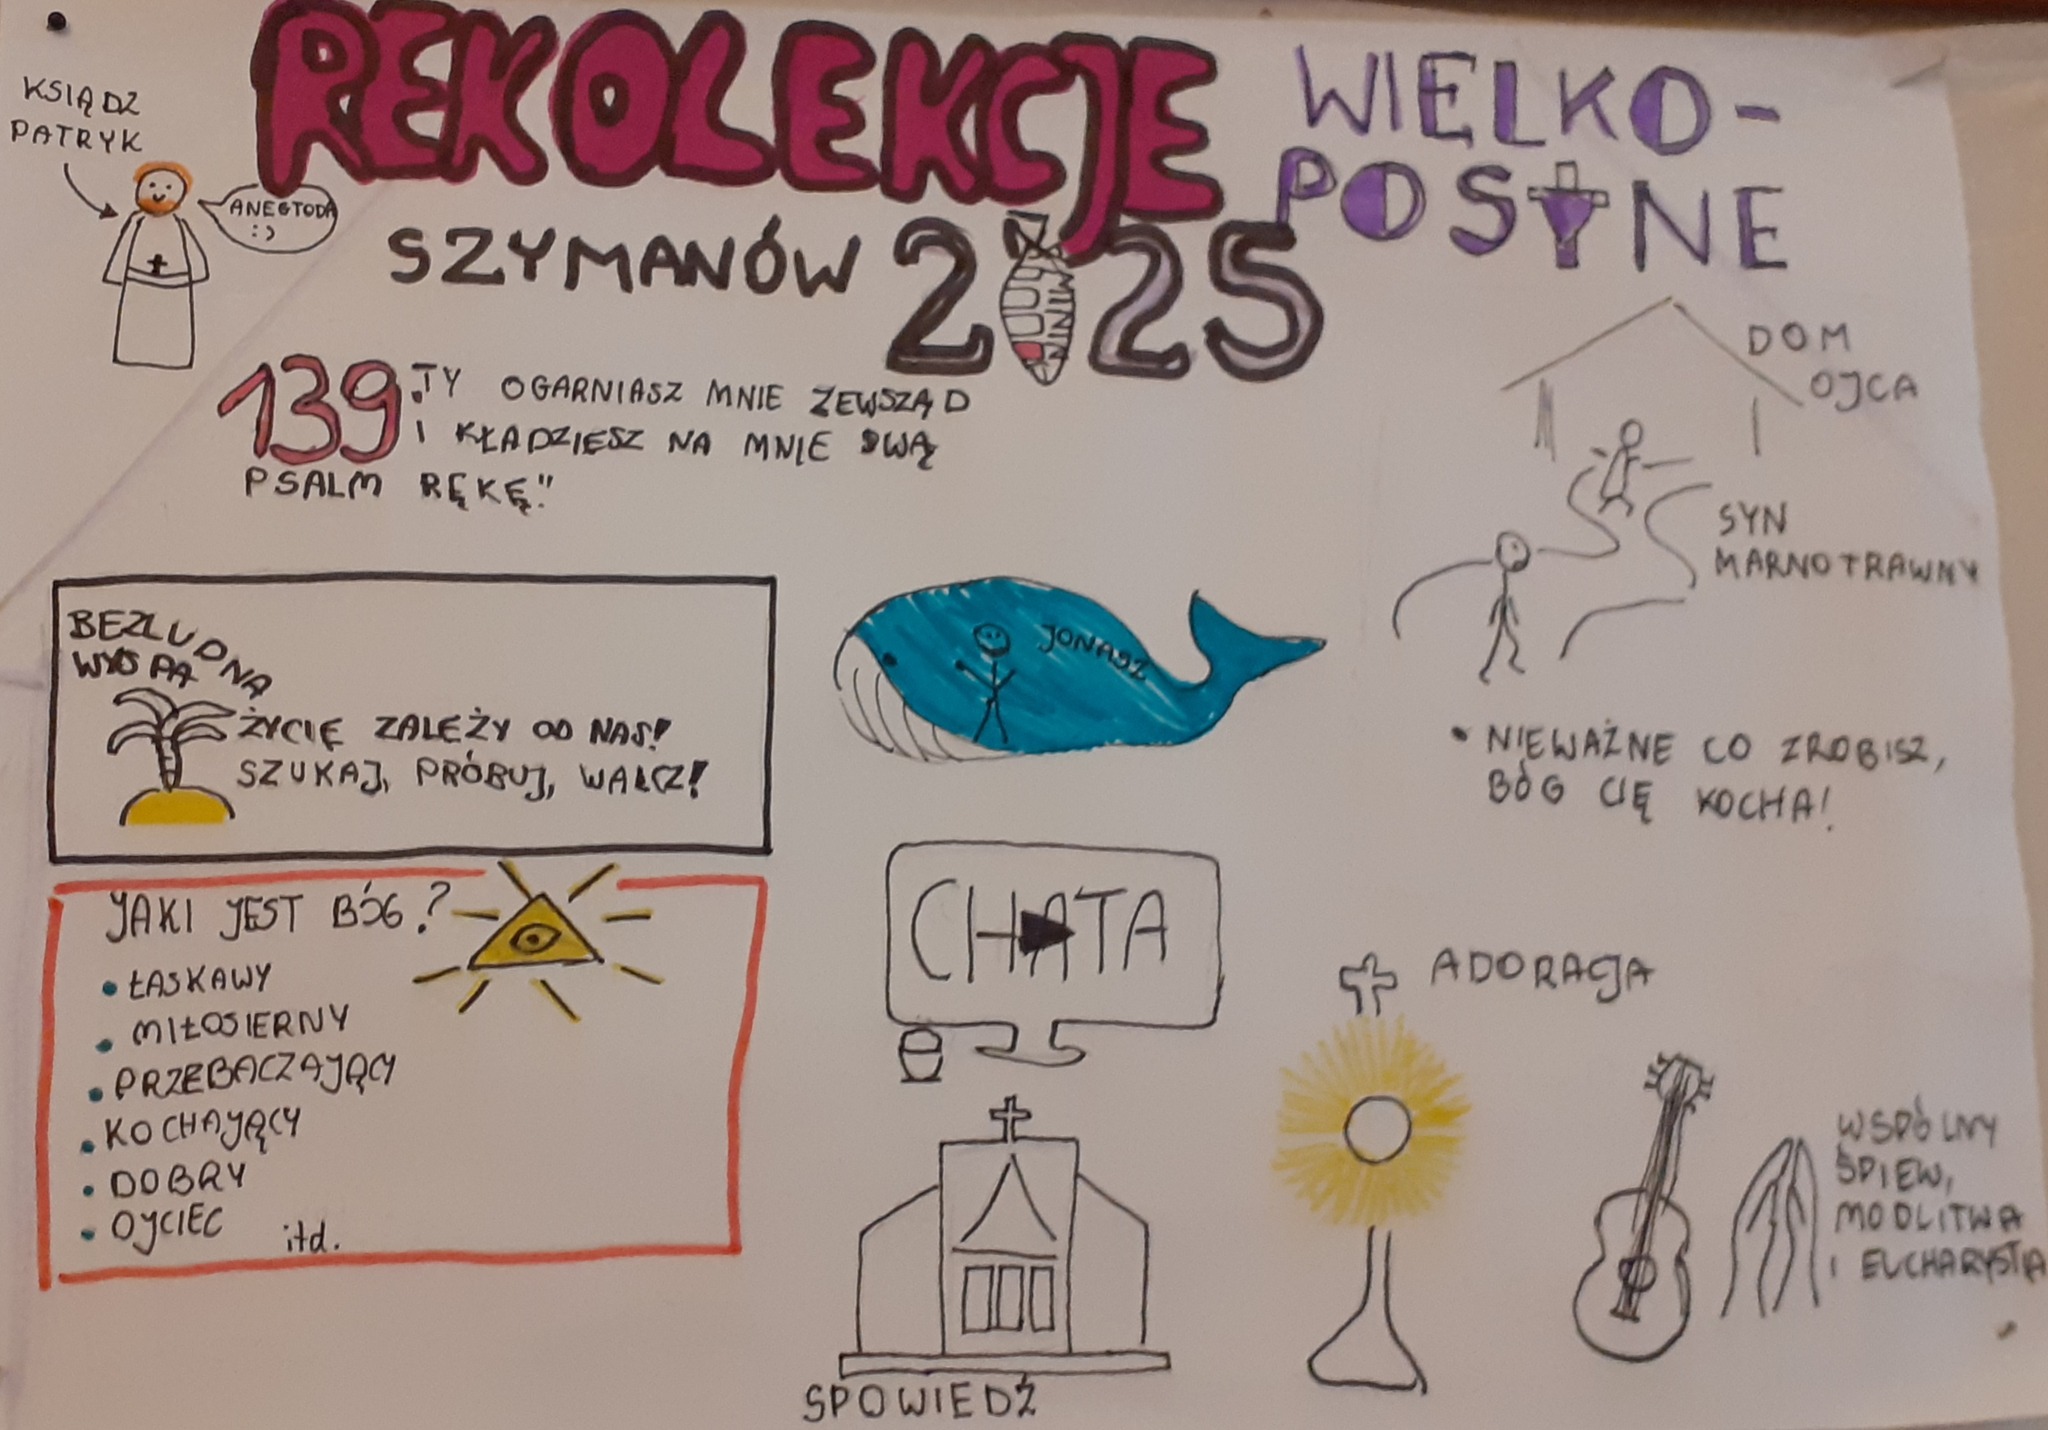 REKOLEKCJE
WIELKO-
POSTNE
SZYMANÓW 2025
KSIĄDZ
PATRYK
ANEGTODA
:)
139 „TY OGARNIASZ MNIE ZEWSZĄD
I KŁADZIESZ NA MNIE SWĄ
PSALM RĘKĘ."
DOM
OJCA
SYN
MARNOTRAWNY
• NIEWAŻNE CO ZROBISZ,
BÓG CIĘ KOCHA!
BEZLUDNA
WYSPA
ŻYCIE ZALEŻY OD NAS!
SZUKAJ, PRÓBUJ, WALCZ!
JONASZ
JAKI JEST BÓG?
• ŁASKAWY
• MIŁOSIERNY
• PRZEBACZAJĄCY
• KOCHAJĄCY
• DOBRY
• OJCIEC itd.
CHATA
SPOWIEDŹ
ADORACJA
WSPÓLNY
ŚPIEW,
MODLITWA
I EUCHARYSTIA